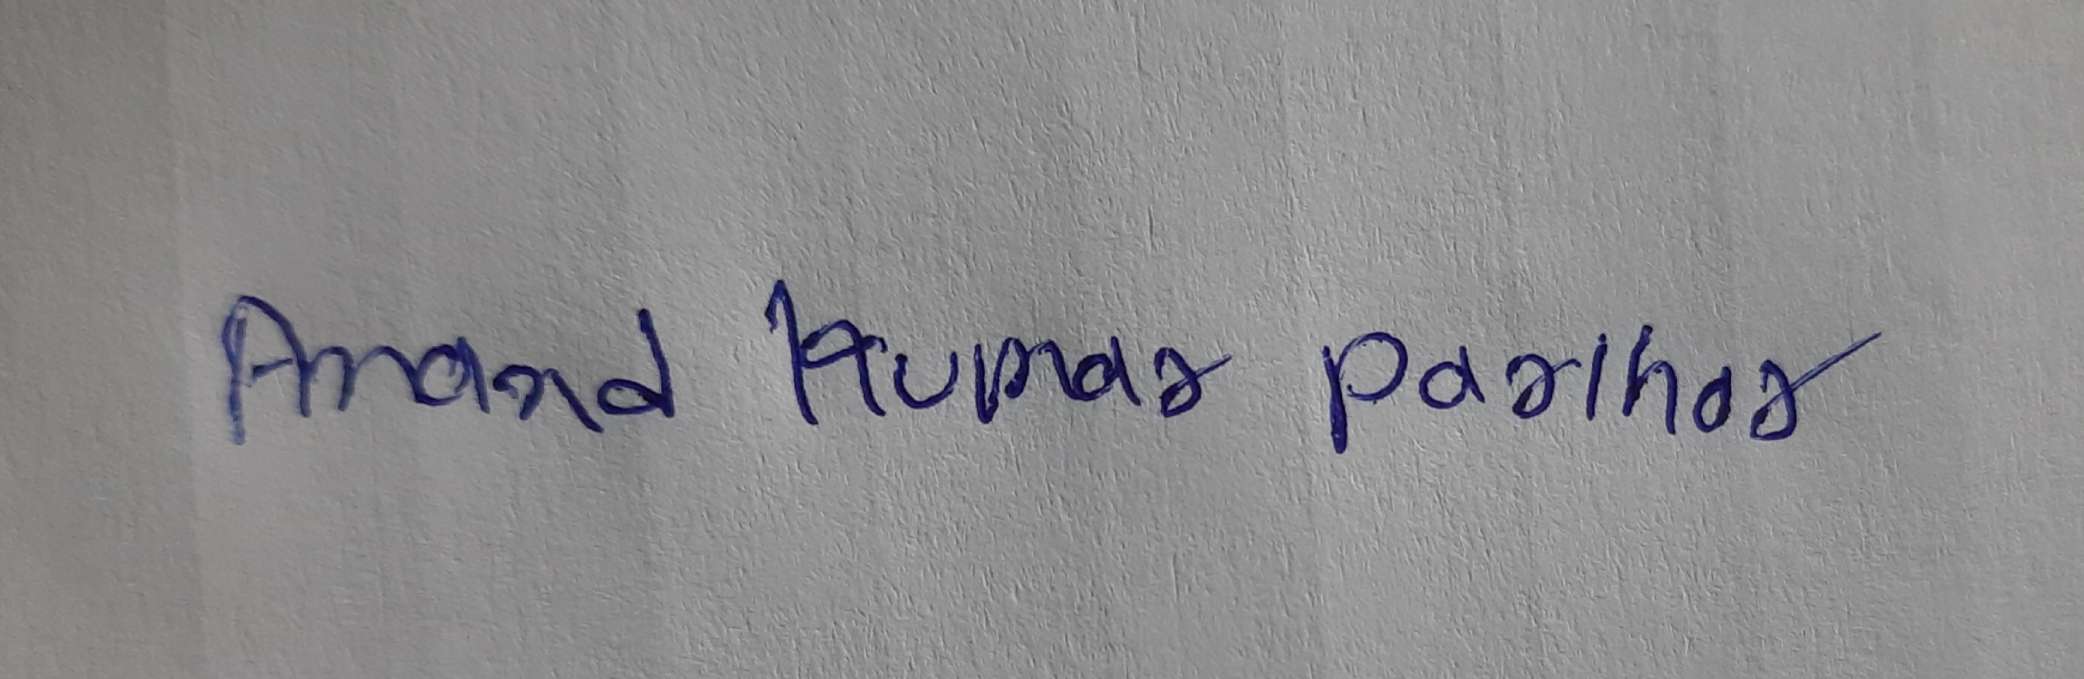 Anand Kumar parihar